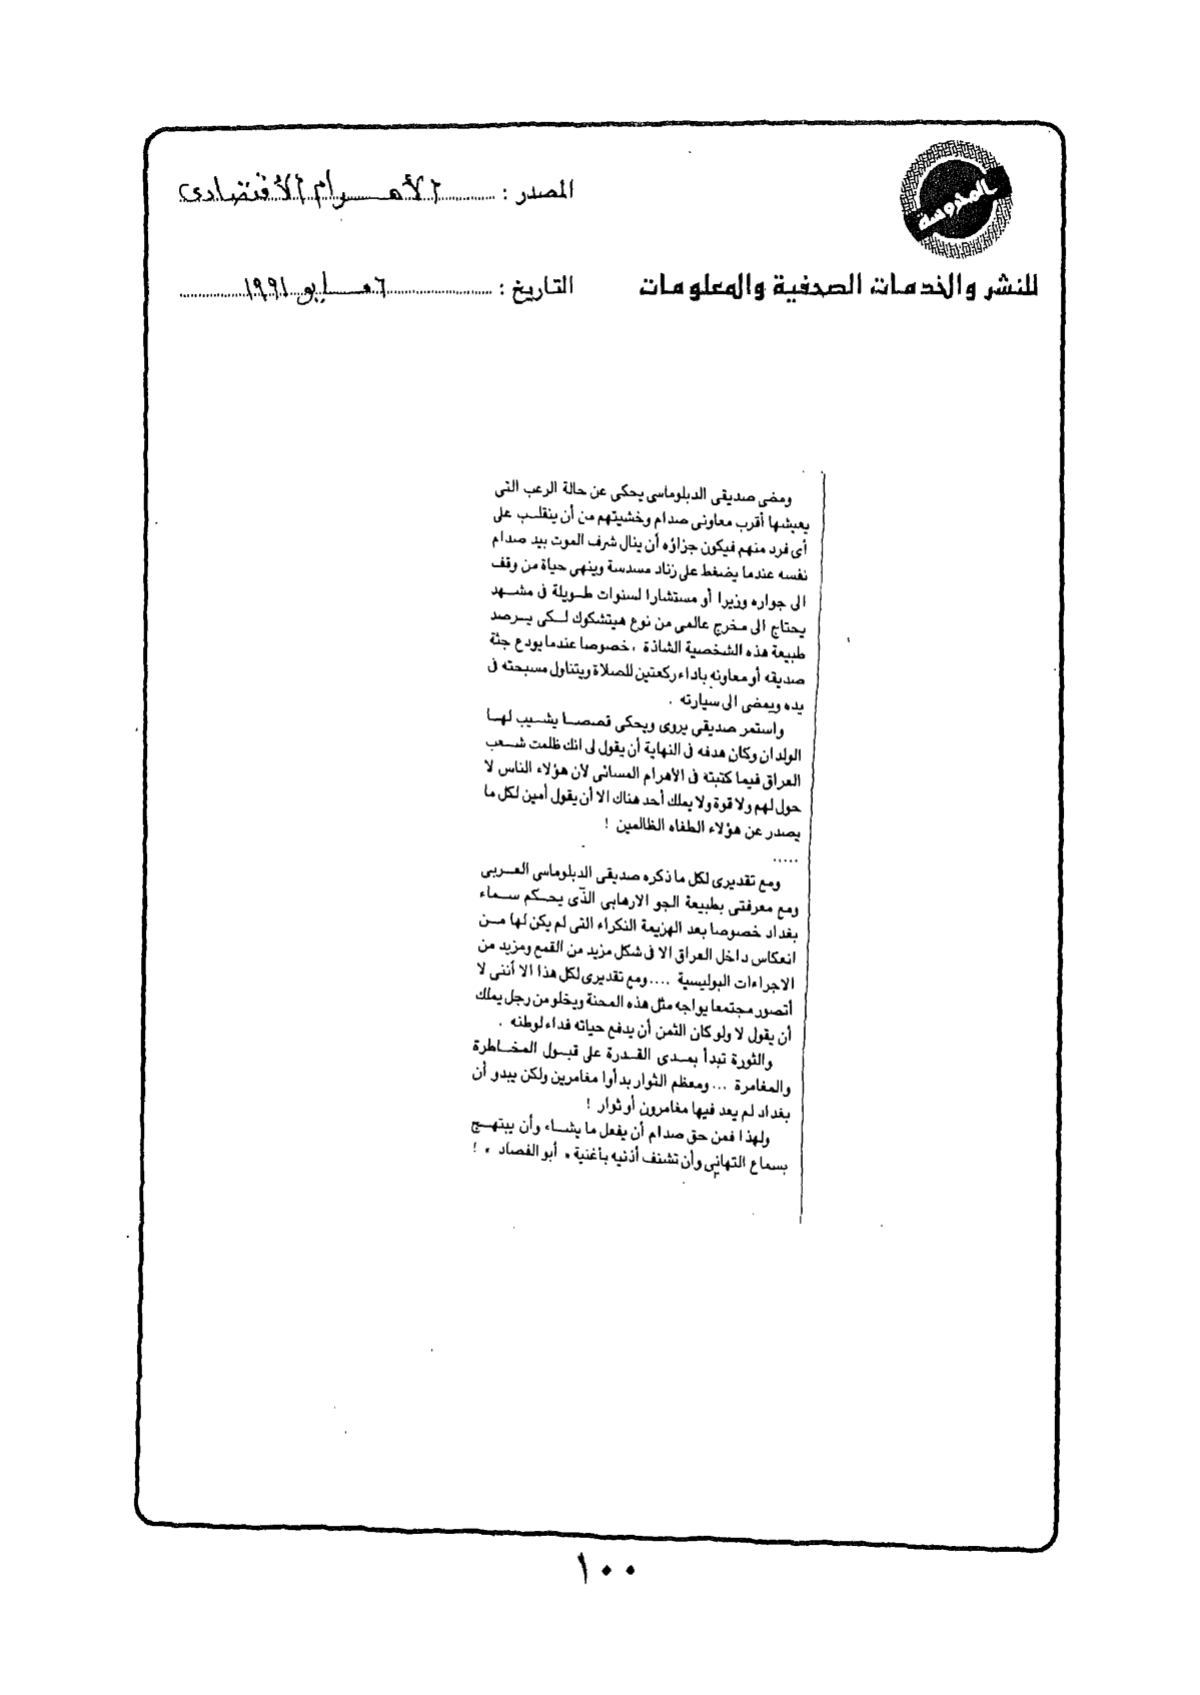 المحروسة
للنشر والخدمات الصحفية والمعلومات
المصدر : الأهرام الأقتصادى
التاريخ : ٦ مايو ١٩٩١
ومضى صديقى الدبلوماسى يحكى عن حالة الرعب التى
يعيشها أقرب معاونى صدام وخشيتهم من أن ينقلب على
أى فرد منهم فيكون جزاؤه أن ينال شرف الموت بيد صدام
نفسه عندما يضغط على زناد مسدسة وينهى حياة من وقف
الى جواره وزيرا أو مستشارا لسنوات طويلة فى مشهد
يحتاج الى مخرج عالمى من نوع هيتشكوك لكى يرصد
طبيعة هذه الشخصية الشاذة ، خصوصا عندما يودع جثة
صديقه أو معاونه باداء ركعتين للصلاة ويتناول مسبحته فى
يده ويمضى الى سيارته .
واستمر صديقى يروى ويحكى قصصا يشيب لها
الولدان وكان هدفه فى النهاية أن يقول لى انك ظلمت شعب
العراق فيما كتبته فى الأهرام المسائى لأن هؤلاء الناس لا
حول لهم ولا قوة ولا يملك أحد هناك الا أن يقول أمين لكل ما
يصدر عن هؤلاء الطفاه الظالمين !
.....
ومع تقديرى لكل ما ذكره صديقى الدبلوماسى العربى
ومع معرفتى بطبيعة الجو الارهابى الذى يحكم سماء
بغداد خصوصا بعد الهزيمة النكراء التى لم يكن لها من
انعكاس داخل العراق الا فى شكل مزيد من القمع ومزيد من
الاجراءات البوليسية .... ومع تقديرى لكل هذا الا أننى لا
أتصور مجتمعا يواجه مثل هذه المحنة ويخلو من رجل يملك
أن يقول لا ولو كان الثمن أن يدفع حياته فداء لوطنه .
والثورة تبدأ بمدى القدرة على قبول المخاطرة
والمغامرة ... ومعظم الثوار بدأوا مغامرين ولكن يبدو أن
بغداد لم يعد فيها مغامرون أو ثوار !
ولهذا فمن حق صدام أن يفعل ما يشاء وأن يبتهج
بسماع التهانى وأن تشنف أذنيه بأغنية « أبو الفصاد » !
١٠٠